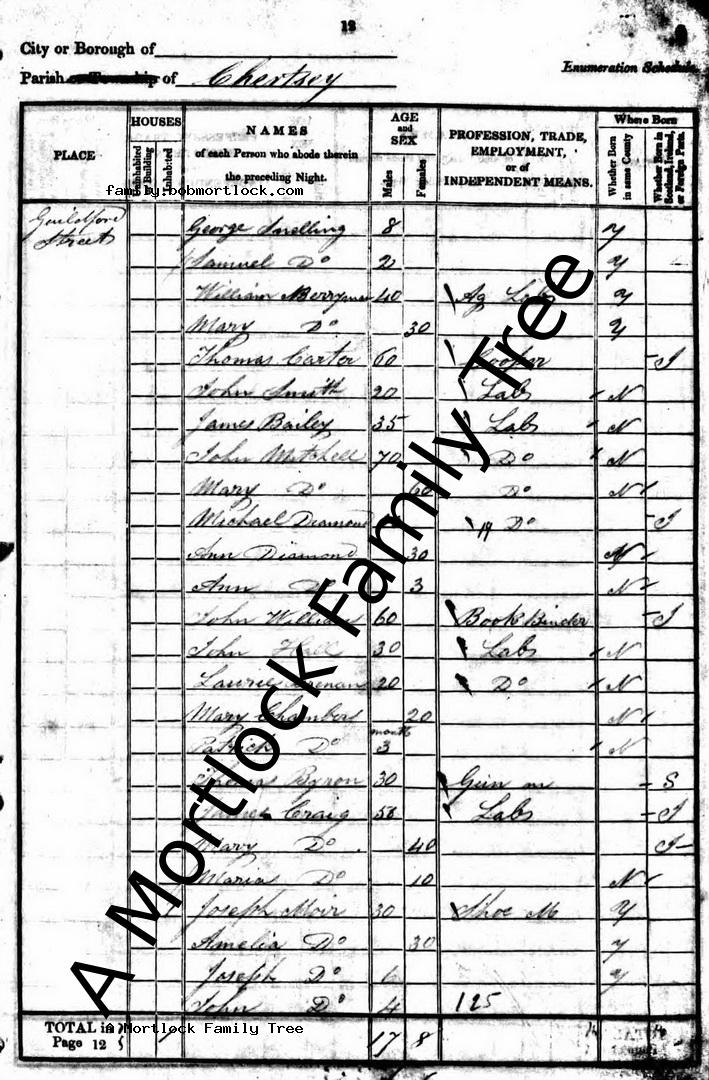 12
City or Borough of
Parish or Township of Chertsey
Enumeration Schedule.
PLACE
HOUSES
Uninhabited or Building
Inhabited
NAMES
of each Person who abode therein
the preceding Night.
AGE
and
SEX
Males
Females
PROFESSION, TRADE,
EMPLOYMENT,
or of
INDEPENDENT MEANS.
Where Born
Whether Born in same County
Whether Born in Scotland, Ireland, or Foreign Parts.
family.bobmortlock.com
Guildford
Street
George Snelling 8 Y
Samuel Do 2 Y
William Merryman 40 Ag Lab Y
Mary Do 30 Y
Thomas Carter 60 Cooper I
John Smith 20 Lab N
James Bailey 35 Lab N
John Mitchell 70 Do N
Mary Do 60 Do N
Michael Diamond Do I
Ann Diamond 30 N
Ann Do 3 N
John Williams 60 Book Binder I
John Hall 30 Lab N
20 Do N
Mary Chambers 20 N
Patrick Do 3 months N
Thomas Byron 30 S
James Craig Lab I
Mary Do 40 I
Maria Do 10 N
Joseph Moir 30 Shoe M Y
Amelia Do 30 Y
Joseph Do 6 Y
John Do 4 125
TOTAL in
Page 12
17 8
A Mortlock Family Tree
A Mortlock Family Tree